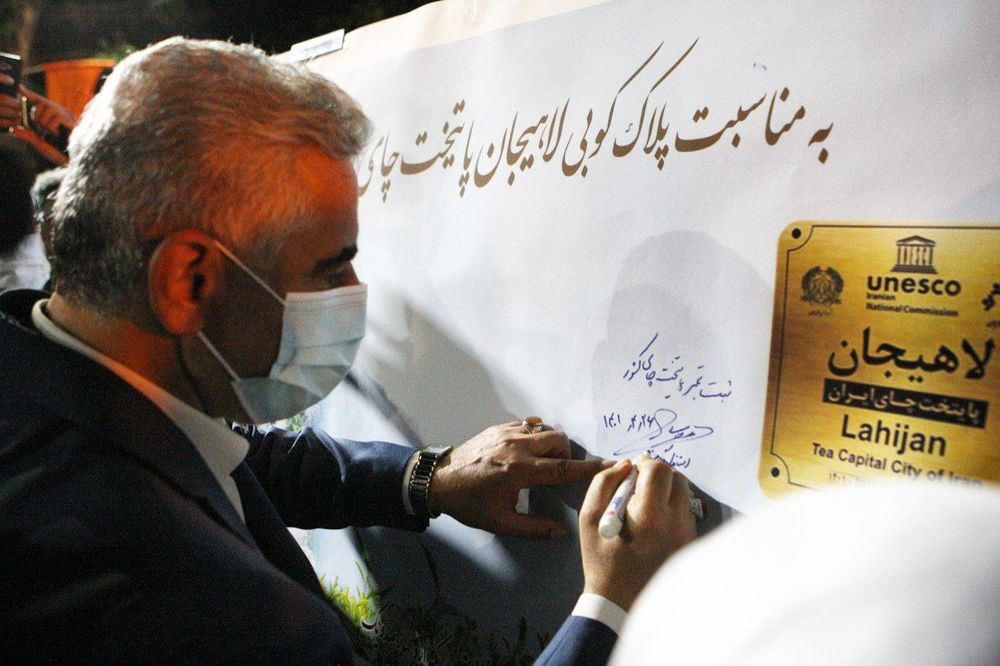 به مناسبت پلاک کوبی لاهیجان پایتخت چای
ثبت پایتخت چای کشور
۱۴۰۱
unesco
Iranian
National Commission
لاهیجان
پایتخت چای ایران
Lahijan
Tea Capital City of Iran